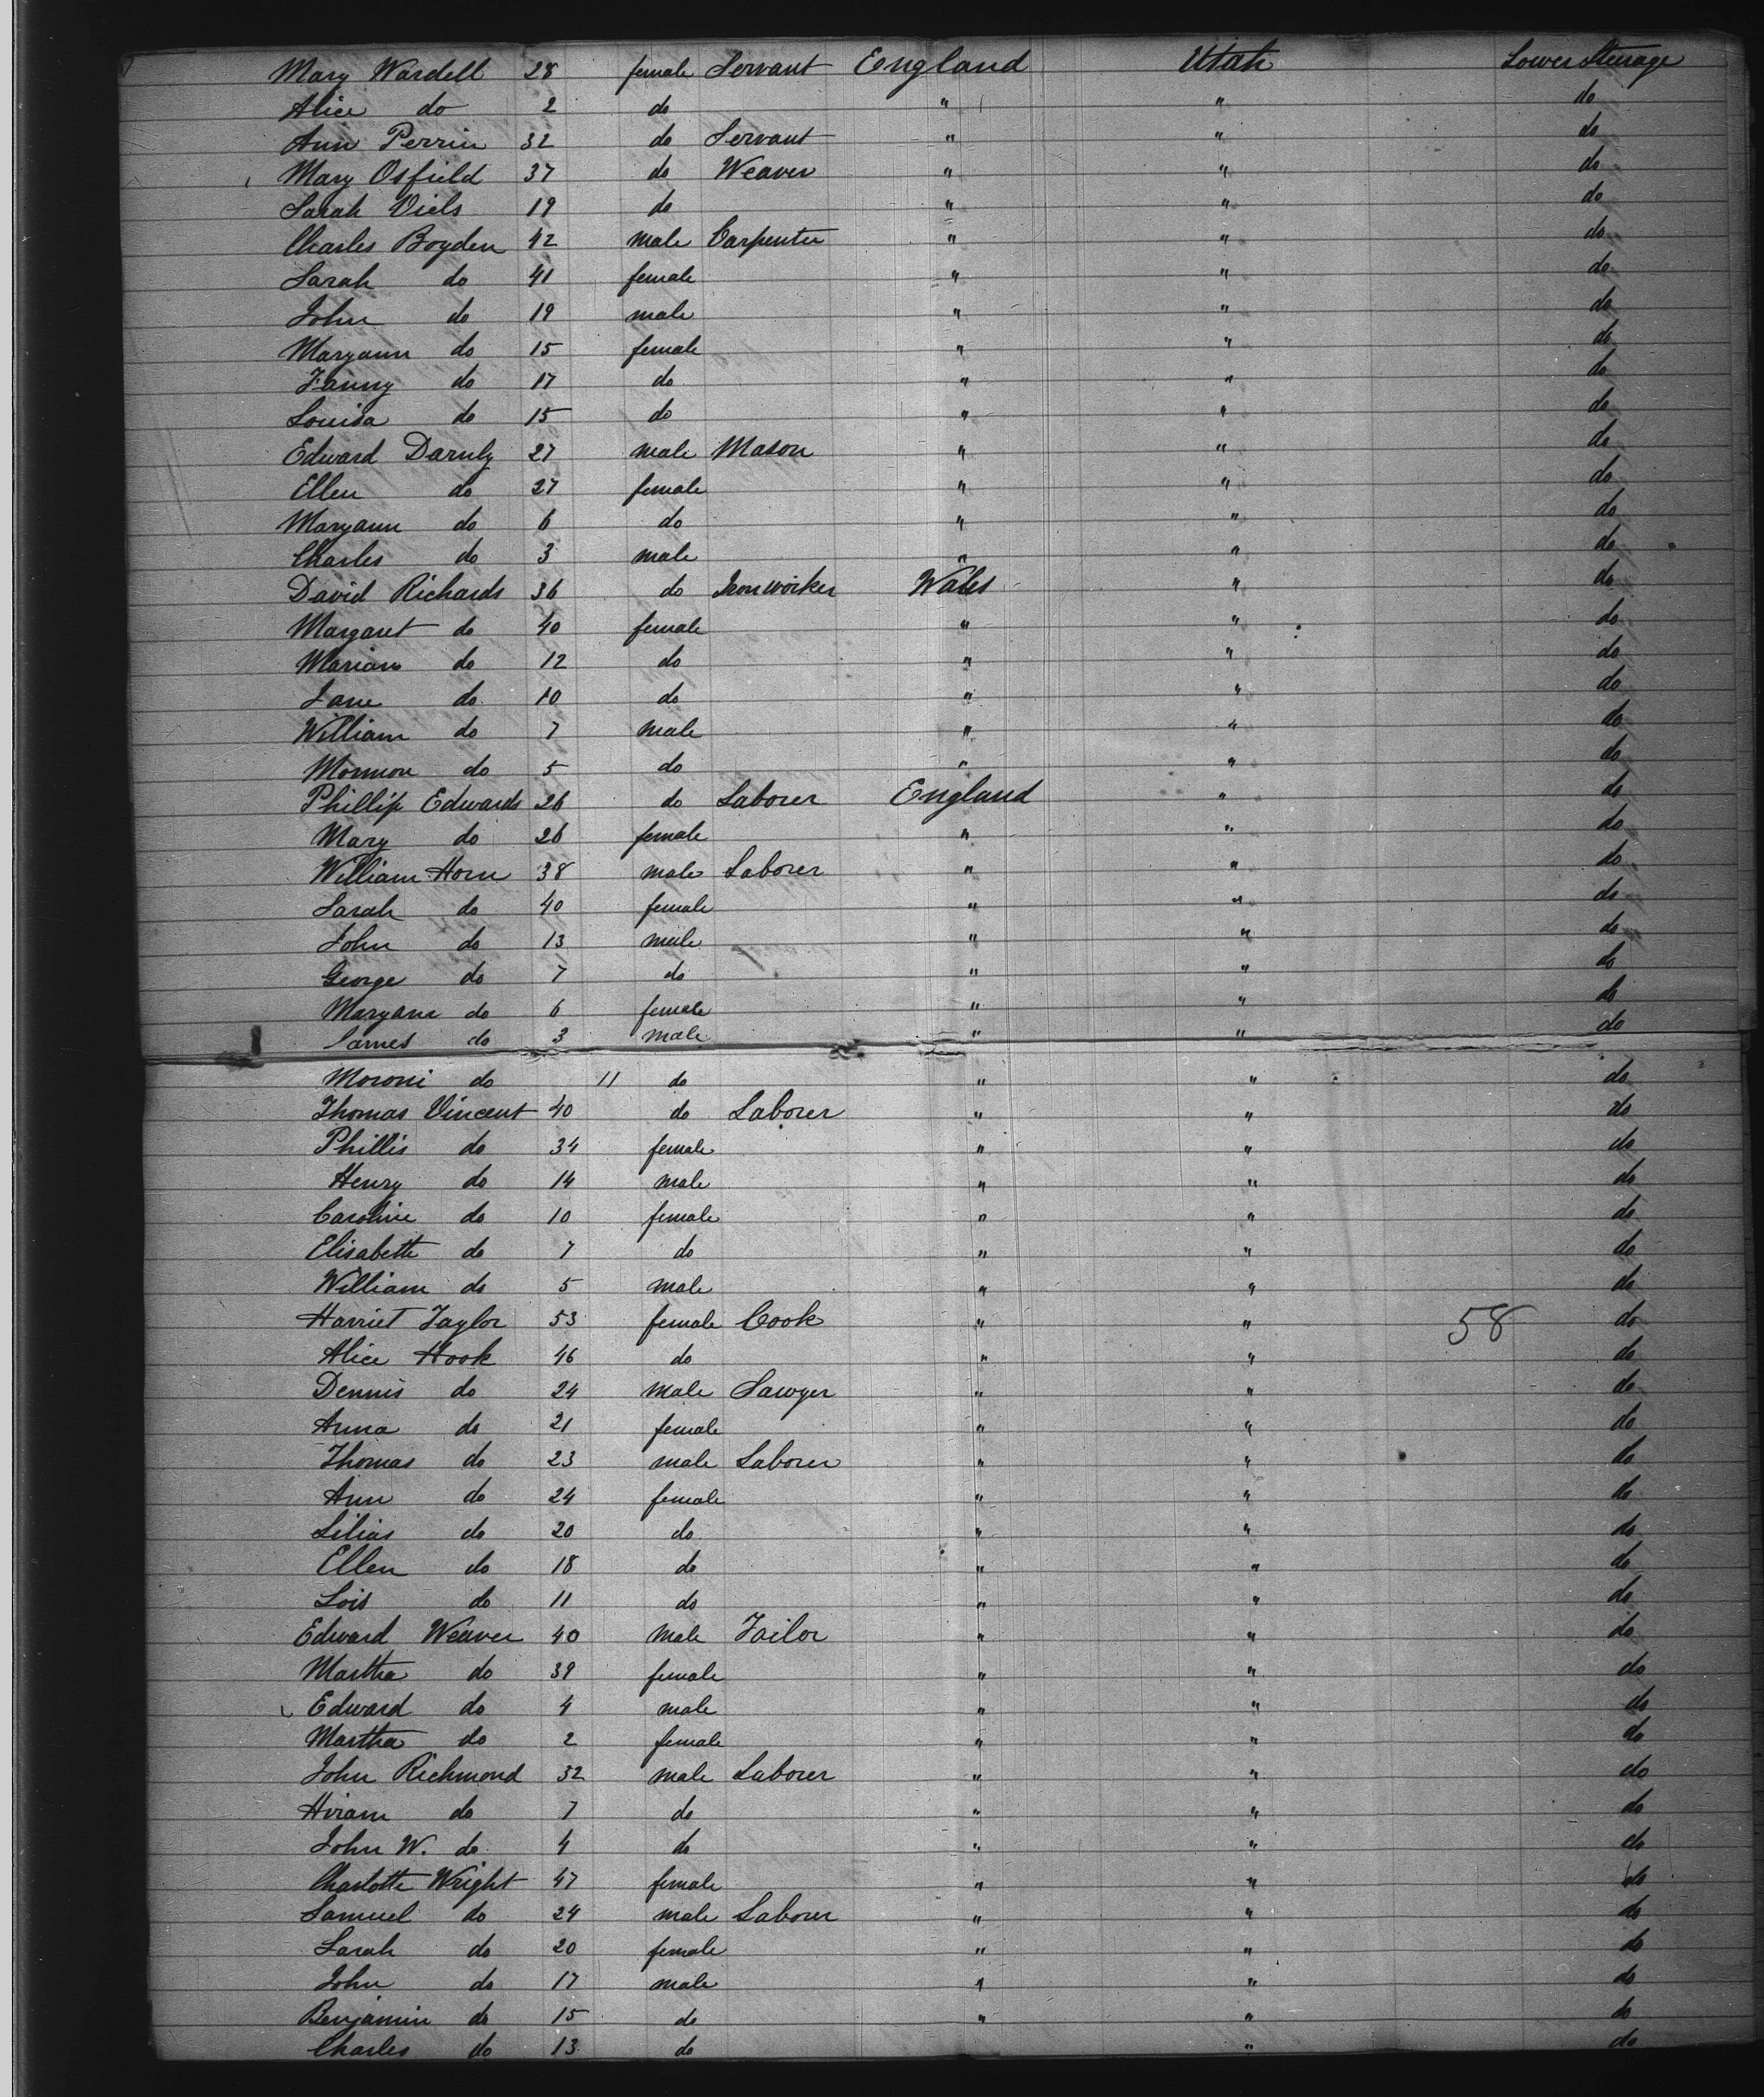 Mary Wardell 28 female Servant England Utah Lower Steerage
Alice do 2 do " " do
Ann Perrin 32 do Servant " " do
Mary Osfield 37 do Weaver " " do
Sarah Viels 19 do " " do
Charles Boyden 42 male Carpenter " " do
Sarah do 41 female " " do
John do 19 male " " do
Maryann do 15 female " " do
Fanny do 17 do " " do
Louisa do 15 do " " do
Edward Darnly 27 male Mason " " do
Ellen do 27 female " " do
Maryann do 6 do " " do
Charles do 3 male " " do
David Richards 36 do Ironworker Wales " do
Margaret do 40 female " " do
Marian do 12 do " " do
Jane do 10 do " " do
William do 7 male " " do
Mormon do 5 do " " do
Phillip Edwards 26 do Laborer England " do
Mary do 26 female " " do
William Horn 38 male Laborer " " do
Sarah do 40 female " " do
John do 13 male " " do
George do 7 do " " do
Maryann do 6 female " " do
James do 3 male " " do
Moroni do 11 do " " do
Thomas Vincent 40 do Laborer " " do
Phillis do 34 female " " do
Henry do 14 male " " do
Caroline do 10 female " " do
Elisabeth do 7 do " " do
William do 5 male " " do
Harriet Taylor 53 female Cook " " 58 do
Alice Hook 46 do " " do
Dennis do 24 male Sawyer " " do
Anna do 21 female " " do
Thomas do 23 male Laborer " " do
Ann do 24 female " " do
Lilias do 20 do " " do
Ellen do 18 do " " do
Lois do 11 do " " do
Edward Weaver 40 male Tailor " " do
Martha do 39 female " " do
Edward do 4 male " " do
Martha do 2 female " " do
John Richmond 32 male Laborer " " do
Hiram do 7 do " " do
John W. do 4 do " " do
Charlotte Wright 47 female " " do
Samuel do 24 male Laborer " " do
Sarah do 20 female " " do
John do 17 male " " do
Benjamin do 15 do " " do
Charles do 13 do " do